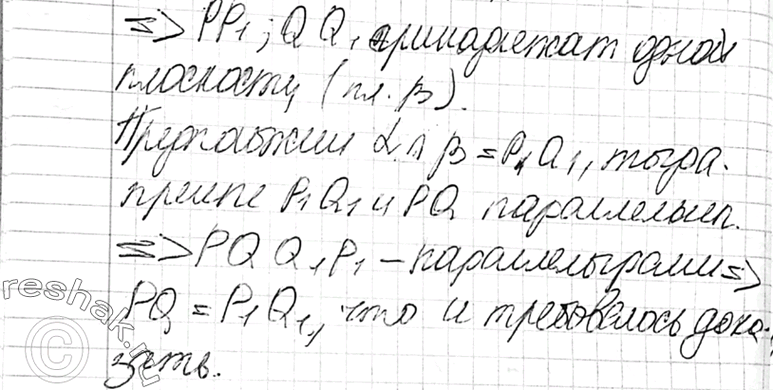 => PP₁; QQ₁ принадлежат одной
плоскости (пл. β).
Предположим α ∩ β = P₁Q₁, тогда
прямые P₁Q₁ и PQ параллельны.
=> PQQ₁P₁ – параллелограмм =>
PQ = P₁Q₁, что и требовалось дока-
зать.
©Reshak.ru